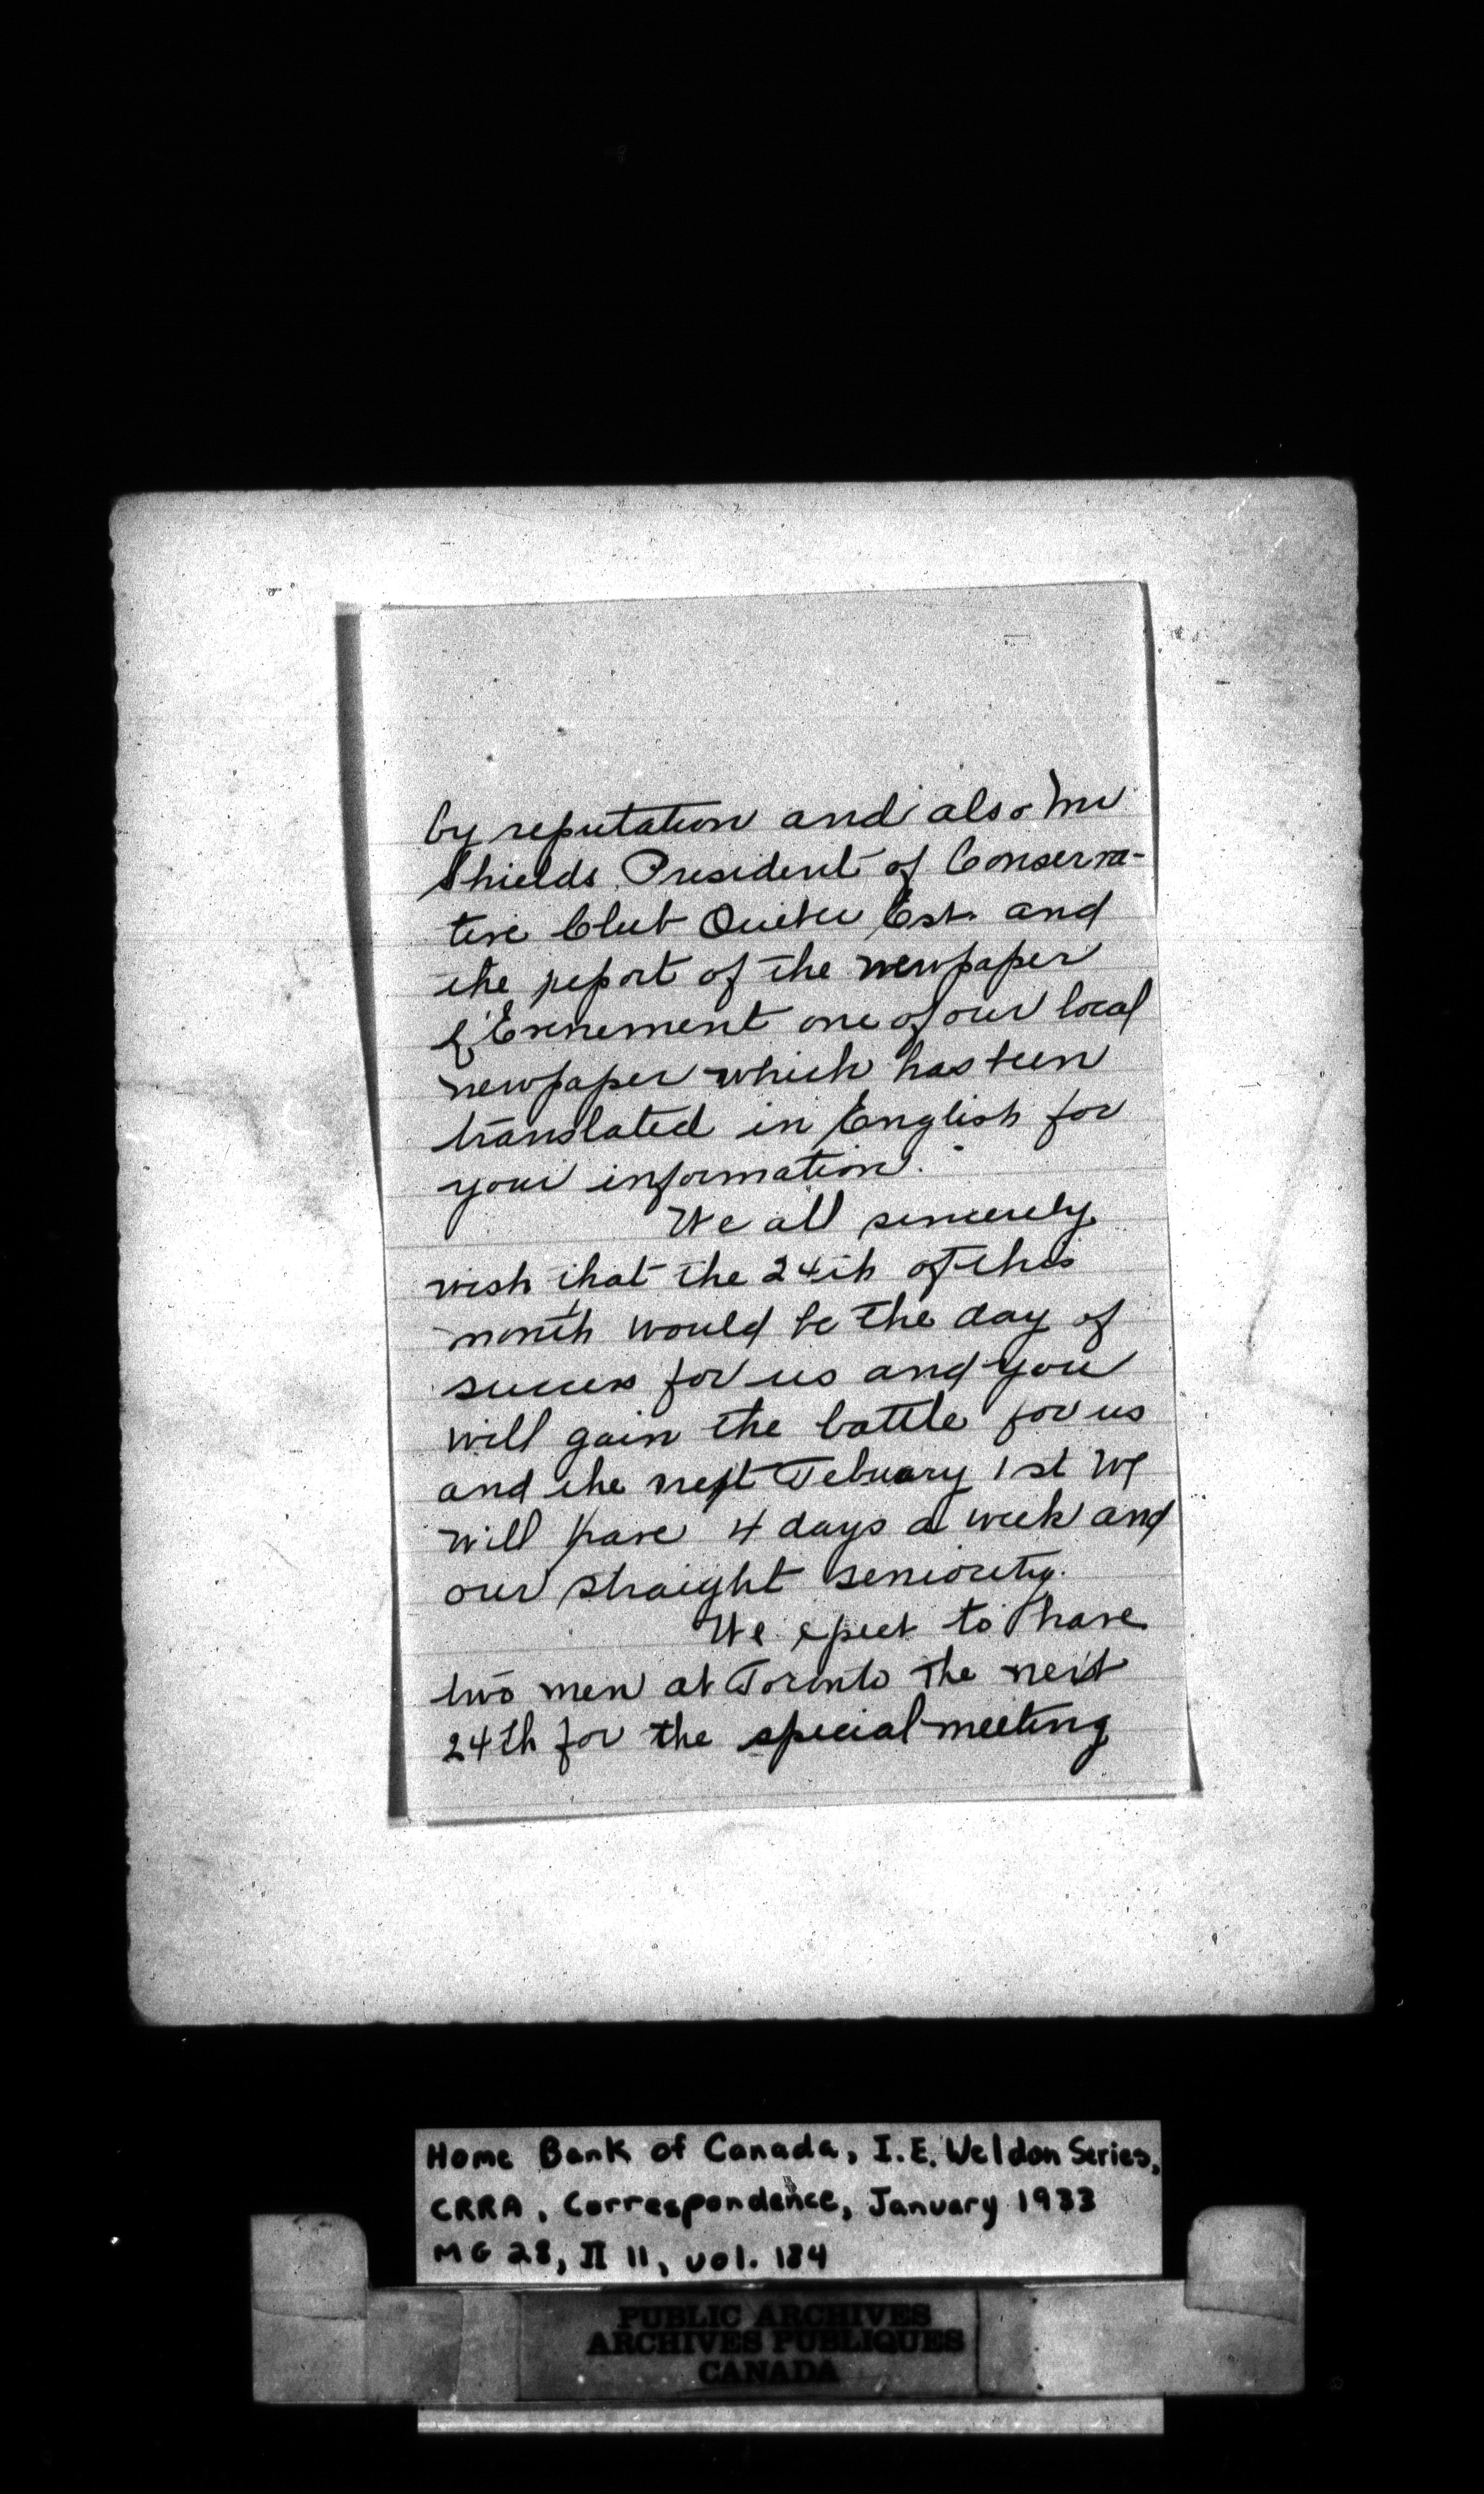 by reputation and also Mr
Shields President of Conserva-
tive Club Quebec Est. and
the report of the newpaper
L'Evenement one of our local
newpaper which has been
translated in English for
your information.
We all sincerely
wish that the 24th of this
month would be the day of
success for us and you
will gain the battle for us
and the next Febuary 1st We
will have 4 days a week and
our straight seniority.
We epect to have
two men at Toronto the next
24th for the special meeting
Home Bank of Canada, I.E. Weldon Series,
CRRA, Correspondence, January 1933
MG 28, II 11, vol. 184
PUBLIC ARCHIVES
ARCHIVES PUBLIQUES
CANADA